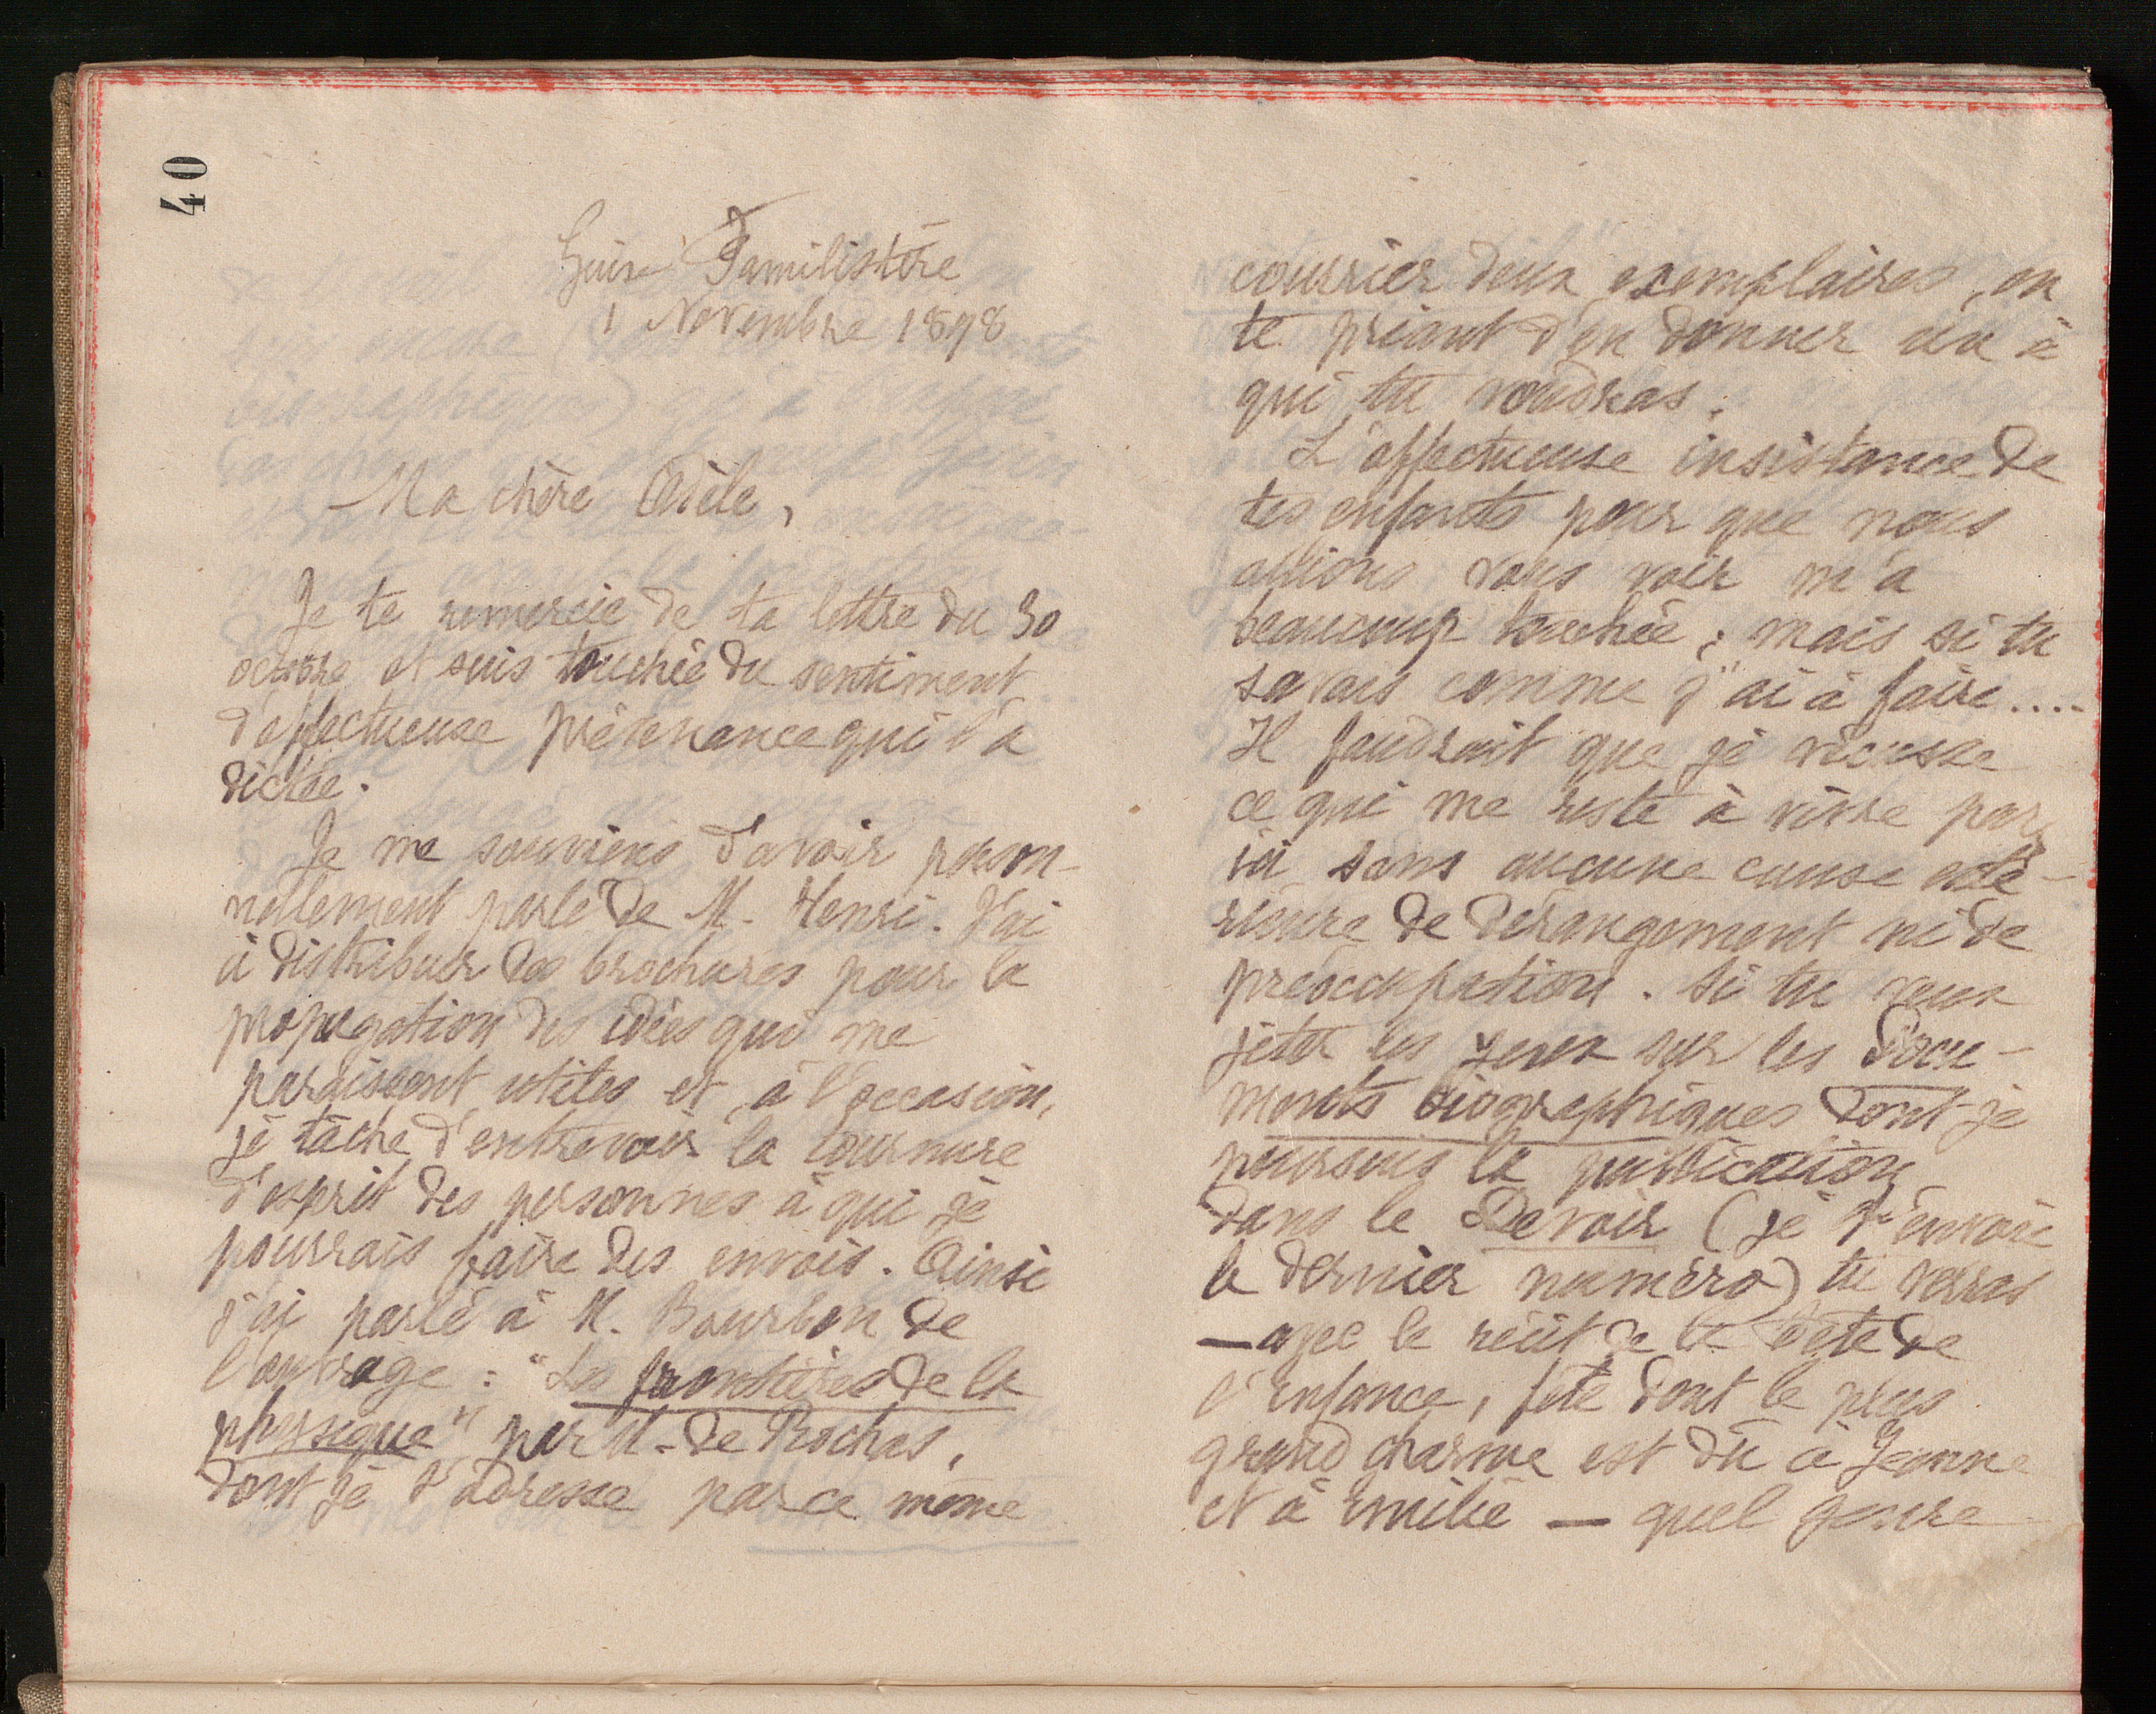 40
Guise Familistère
1 Novembre 1898
Ma chère Adèle,
Je te remercie de ta lettre du 30
octobre et suis touchée du sentiment
d'affectueuse prévenance qui l'a
dictée.
Je me souviens d'avoir person-
nellement parlé de M. Henri. J'ai
à distribuer des brochures pour la
propagation des idées qui me
paraissent utiles et, à l'occasion,
je tâche d'entrevoir la tournure
d'esprit des personnes à qui je
pourrais faire des envois. Ainsi
j'ai parlé à M. Bourbon de
l'ouvrage : "Les frontières de la
physique" par M. de Rochas,
dont je t'adresse par ce même
courrier deux exemplaires, en
te priant d'en donner un à
qui tu voudras.
L'affectueuse insistance de
tes enfants pour que nous
allions vous voir m'a
beaucoup touchée ; mais si tu
savais comme j'ai à faire....
Il faudrait que je vécusse
ce qui me reste à vivre par
ici sans aucune cause exté-
rieure de dérangement ni de
préoccupation. Si tu veux
jeter les yeux sur les Docu-
ments biographiques dont je
poursuis la publication
dans le Devoir (je t'envoie
le dernier numéro) tu verras
— avec le récit de la fête de
l'Enfance, fête dont le plus
grand charme est dû à Jeanne
et à Emilie — quel genre